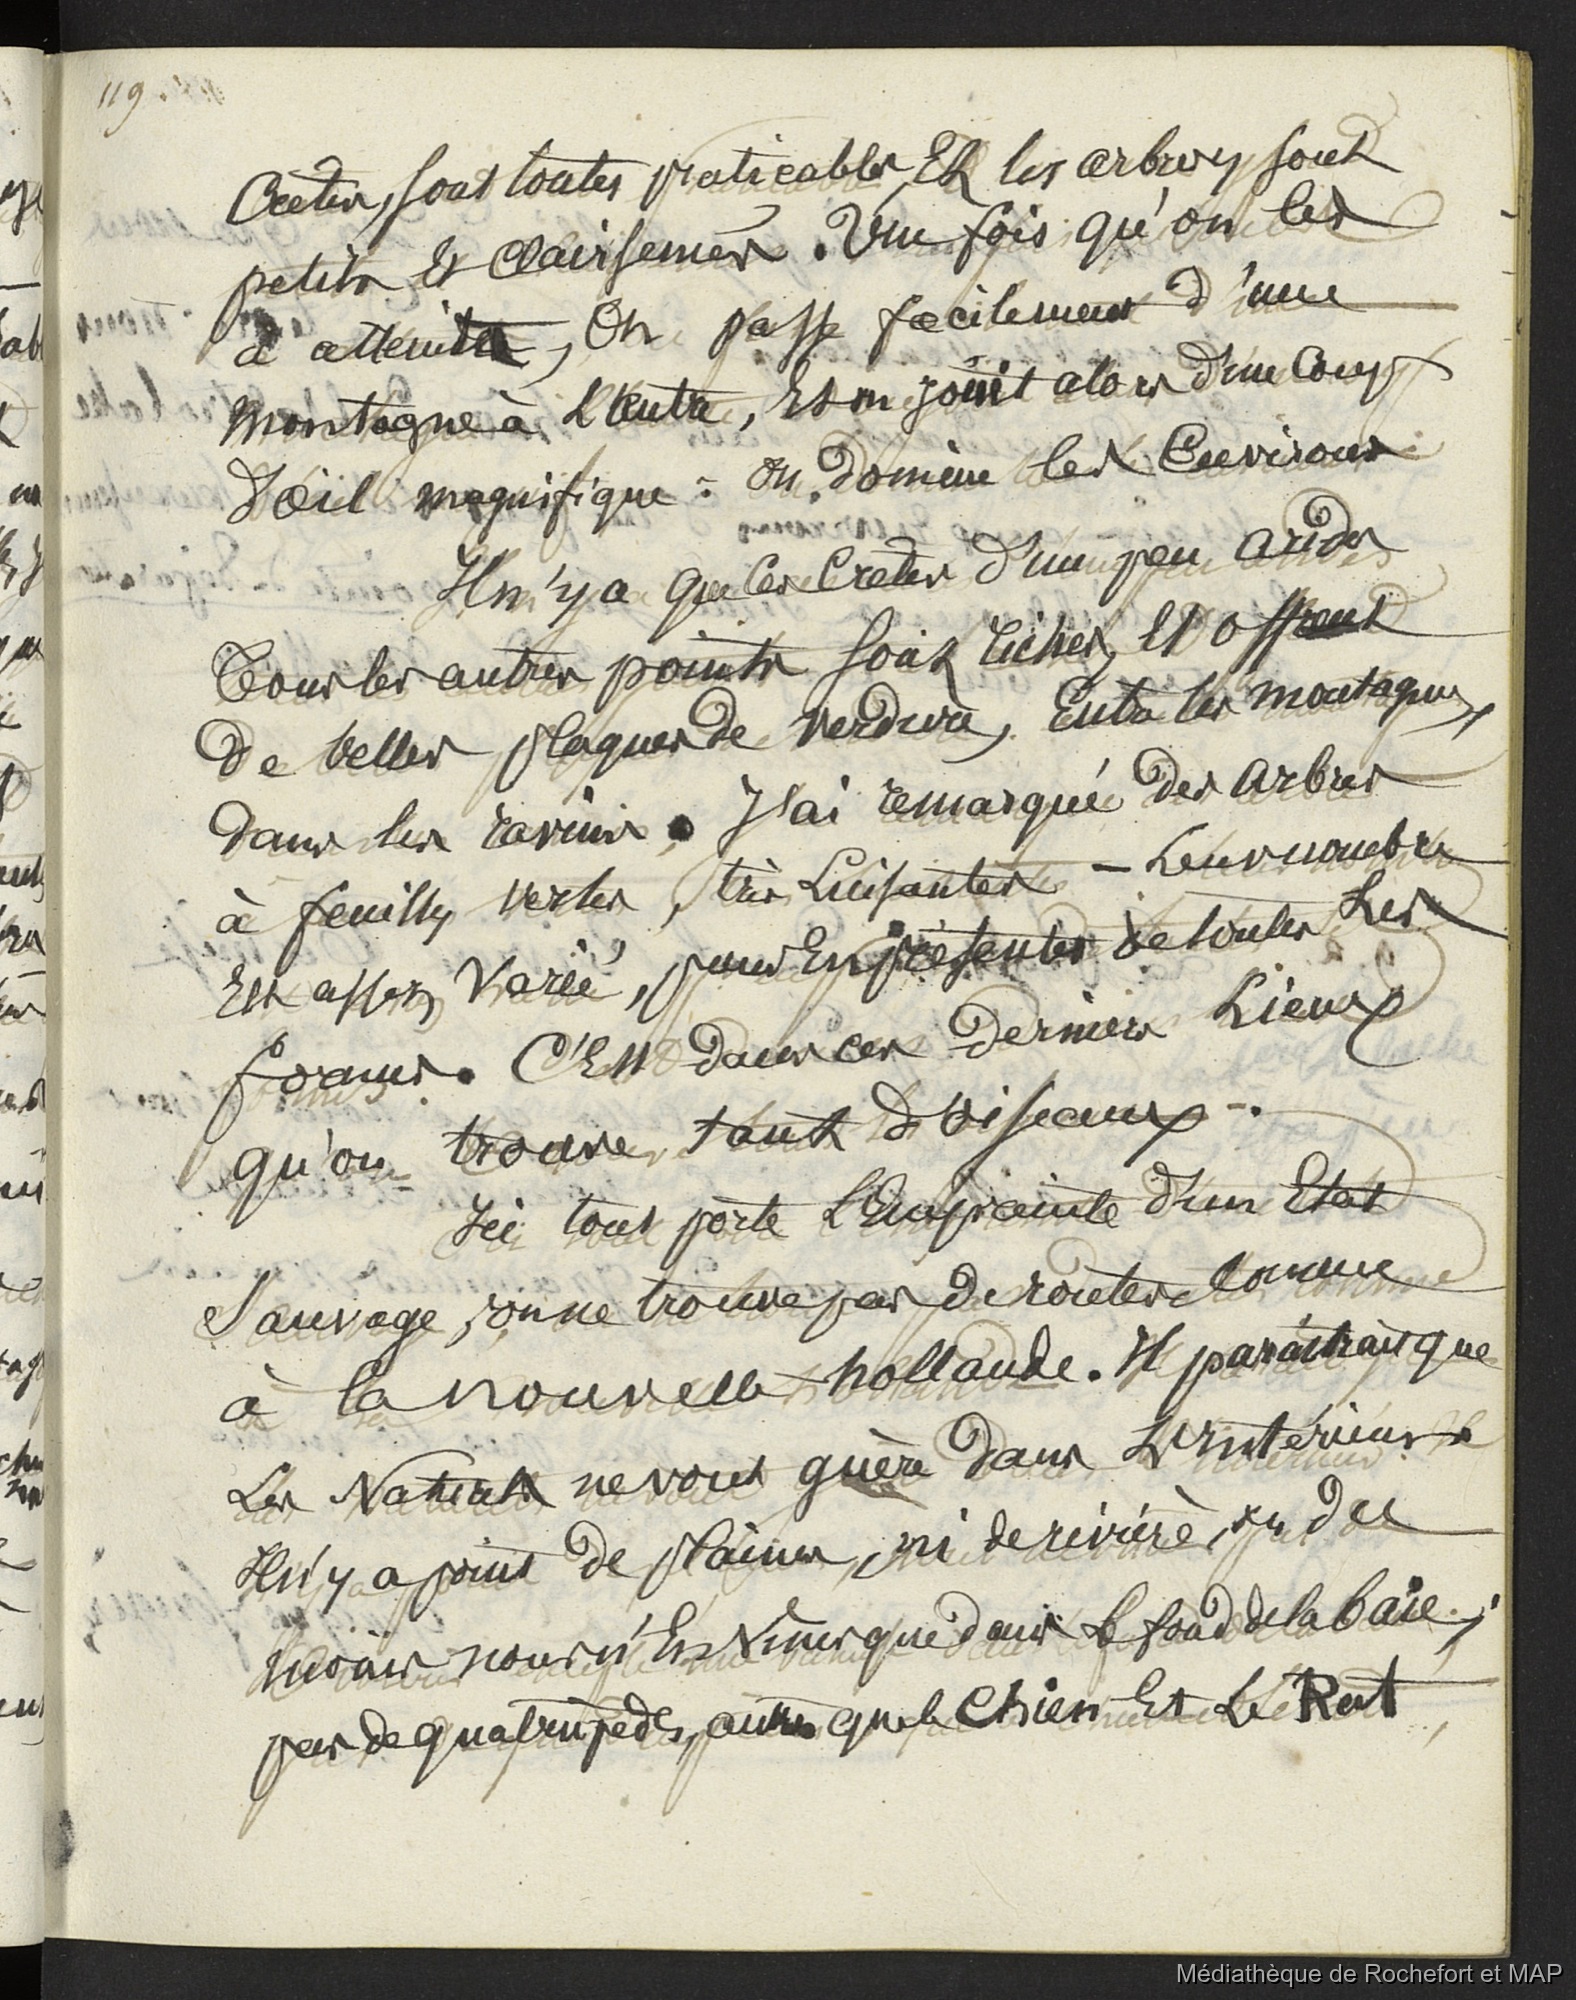 119.
Crêtes, sont toutes praticables, Et les arbres y sont
petits Et clairsemés. Une fois qu'on les
a atteintes, On passe facilement d'une
montagne à L'autre, Et on jouit alors d'un Coup
d'œil magnifique : on domine les Environs
Il n'y a que les Crêtes d'un peu arides
Tous les autres points sont riches, Et offrent
De belles plaques de verdure, Entre les montagnes,
dans les ravins. J'ai remarqué des arbres
à feuilles vertes, très Luisantes – Leur nombre
Est assez Varié, pour En présenter de toutes Les
formes. C'Est dans ces derniers Lieux
qu'on trouve tant d'oiseaux -.
Ici tout porte L'Empreinte d'un Etat
Sauvage, on ne trouve pas de routes Comme
à la nouvelle hollande. Il paraîtrait que
Les Naturels ne vont guère dans L'Intérieur
Il n'y a point de plaines, ni de rivière, ou du
moins nous n'En vimes que dans le fond de la baie,
pas de quadrupèdes, autres que le Chien Et Le Rat
Médiathèque de Rochefort et MAP